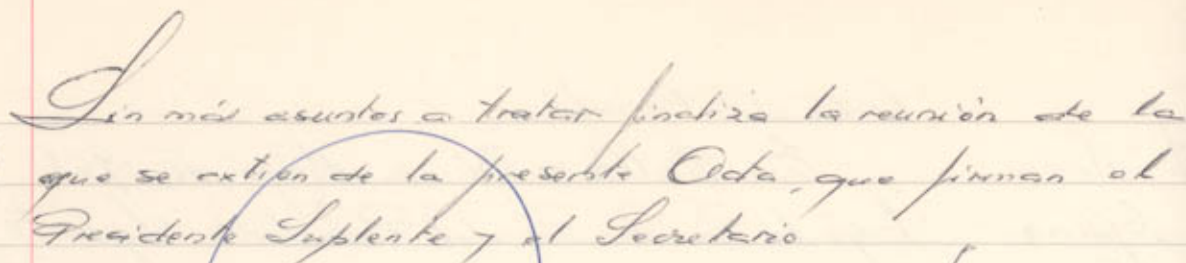 Sin más asuntos a tratar finaliza la reunión de la
que se extiende la presente Acta, que firman el
Presidente Suplente y el Secretario